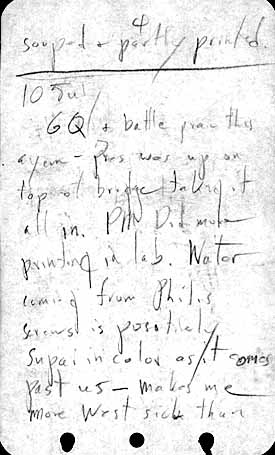 4
souped + partly printed.
10 Jul
GQ + battle prac this
ayem - Pres was up on
top of bridge taking it
all in. PM. Did more
printing in lab. Water
coming from Phil's
screws is positively
in color as it comes
past us - makes me
more West sick than